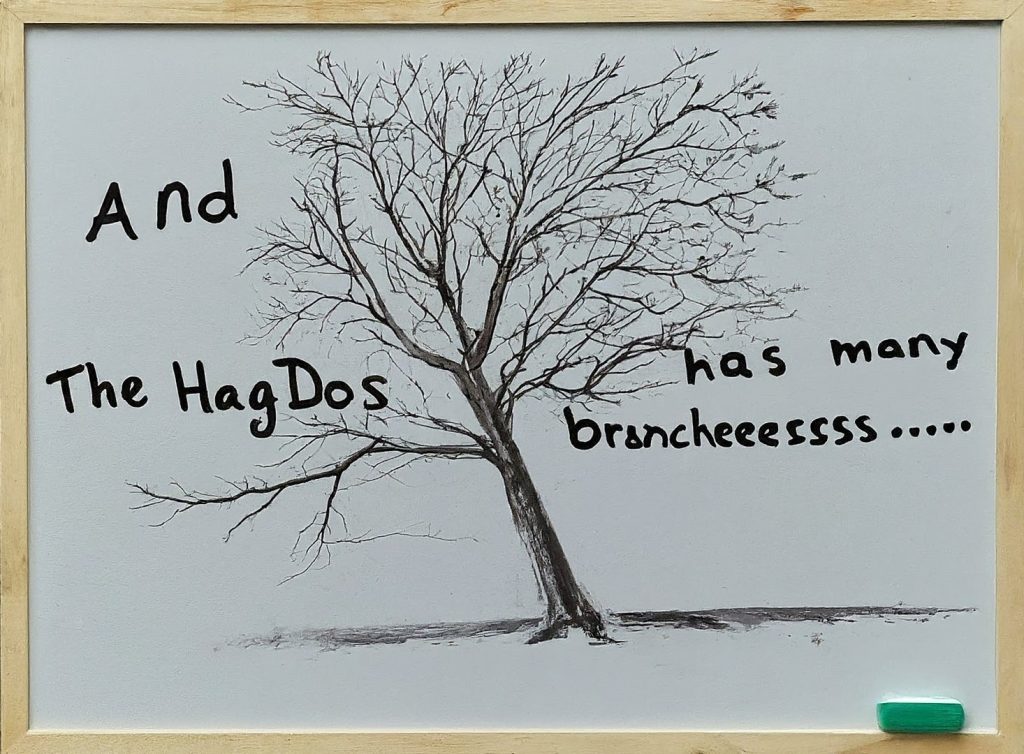 And
The HagDos has many
brancheeessss.....